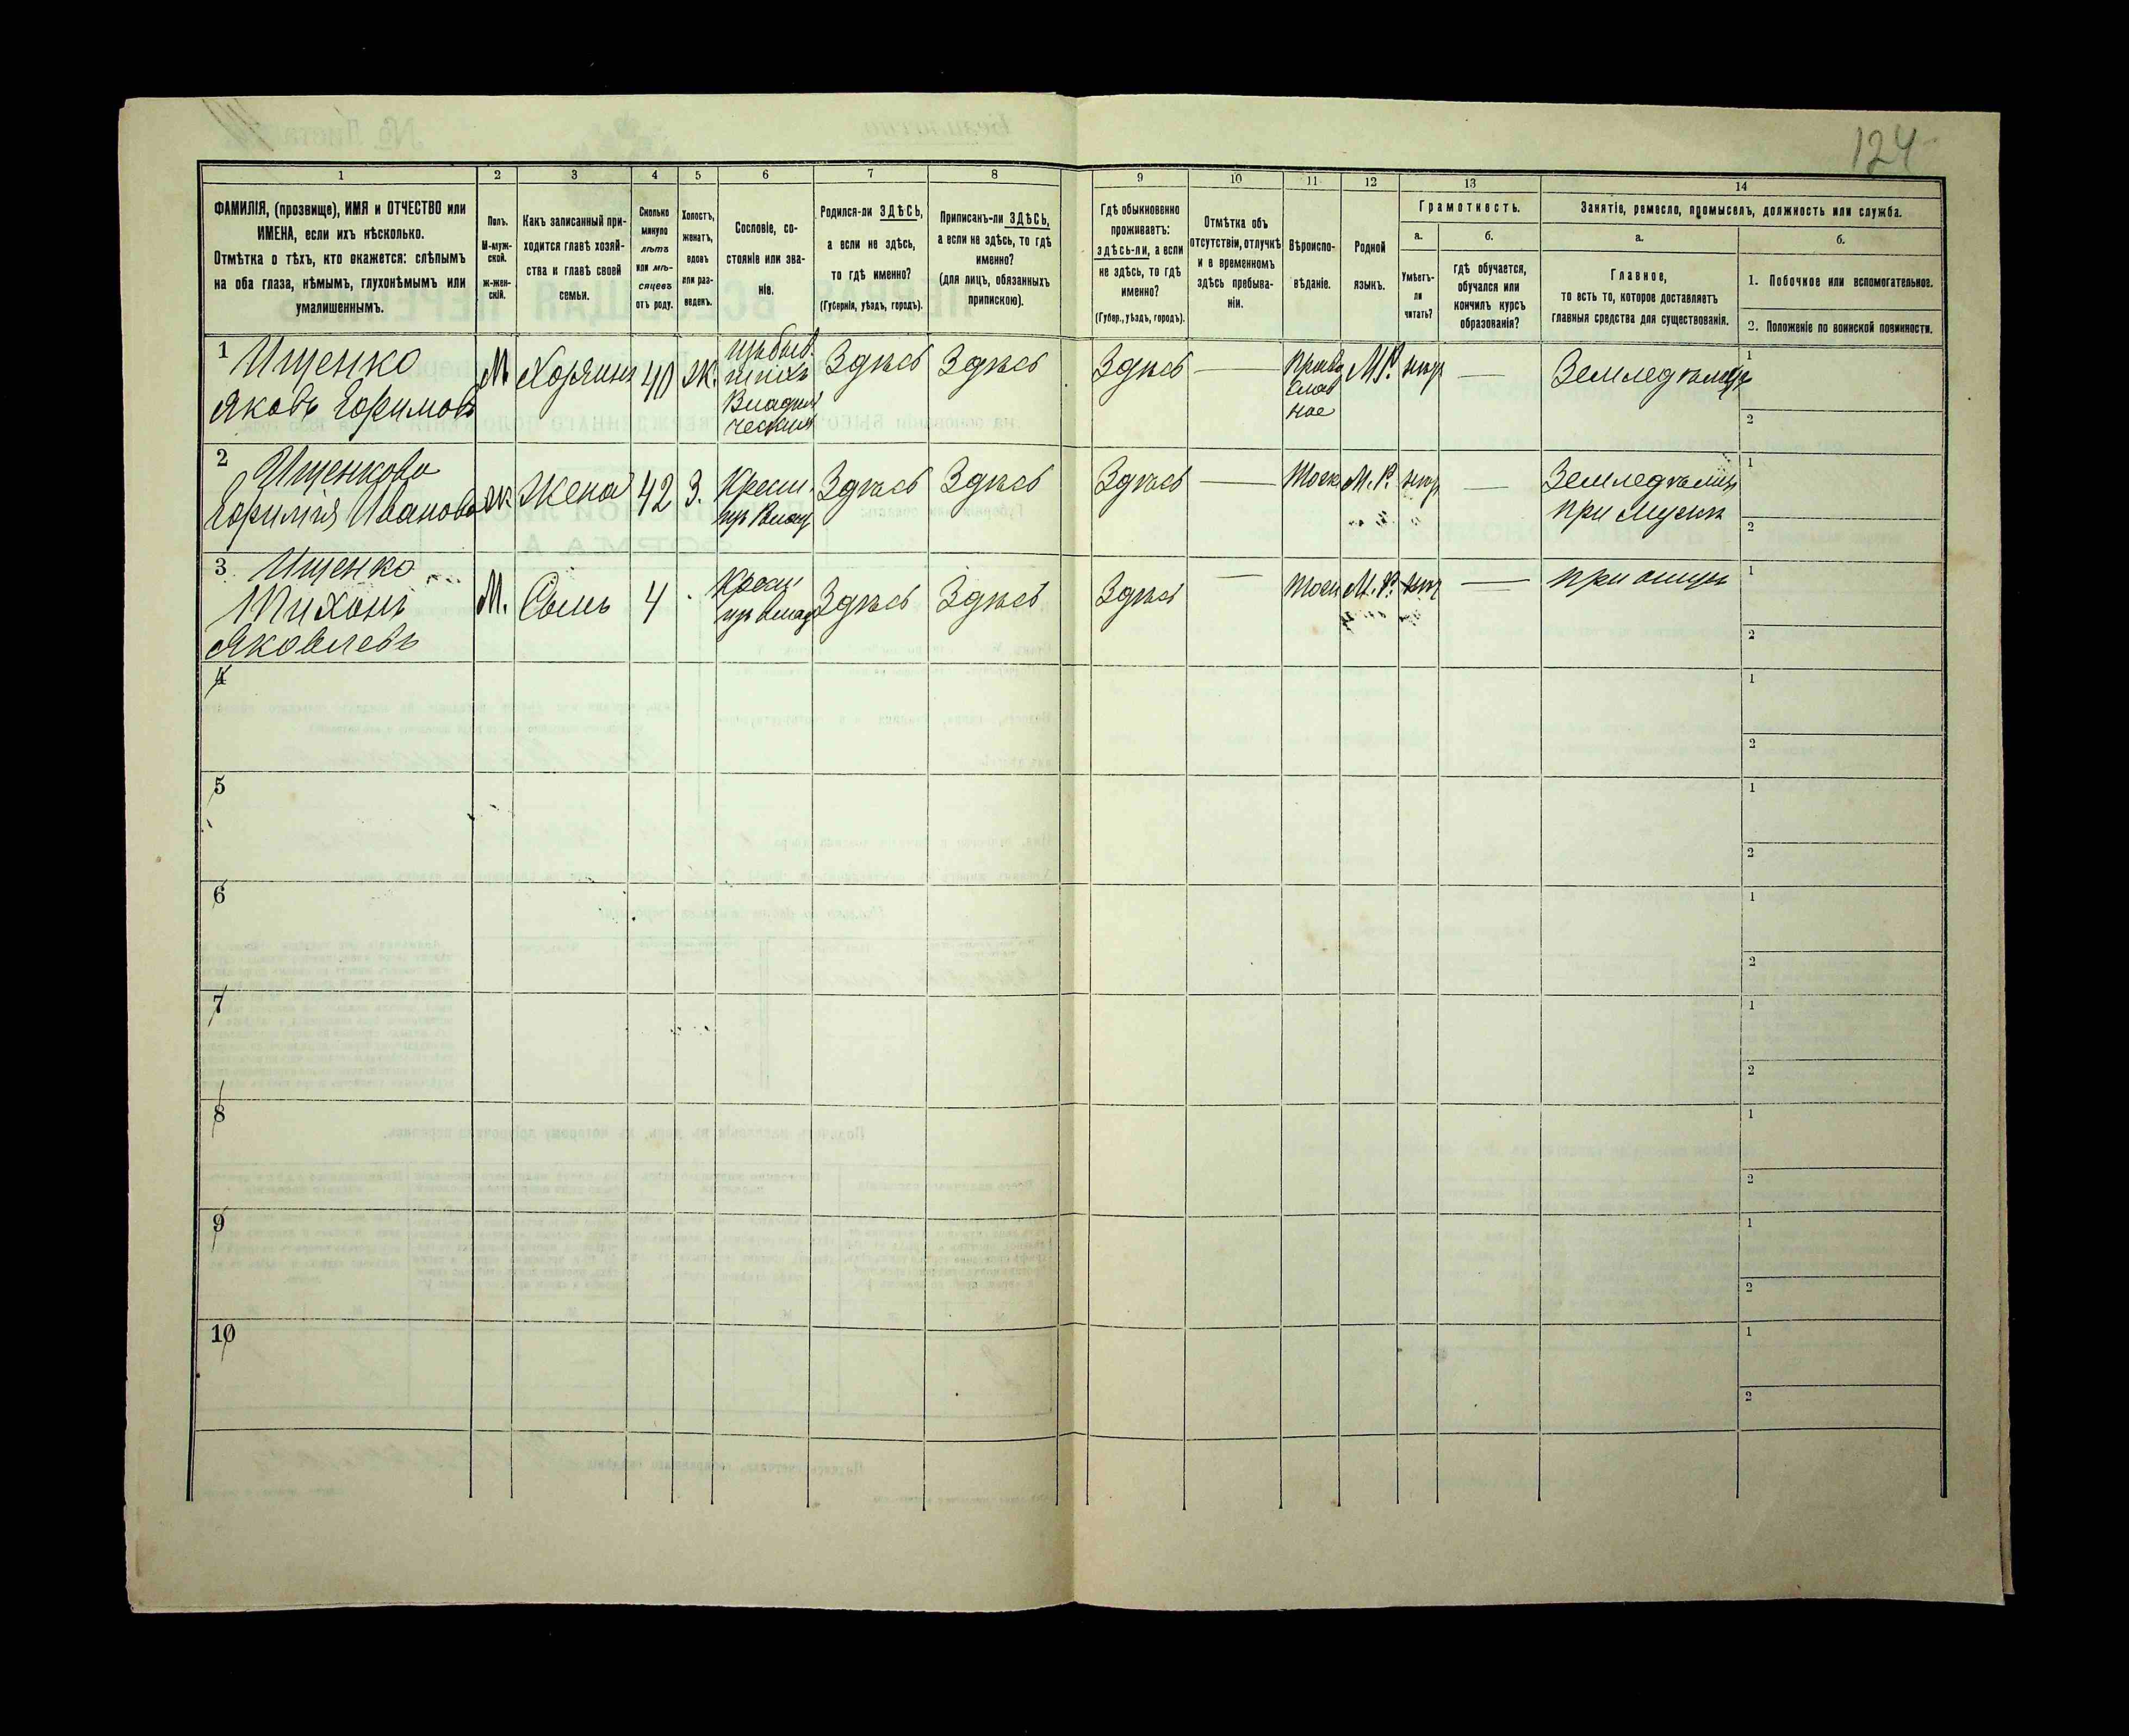 124
1
2
3
4
5
6
7
8
9
10
11
12
13
14
ФАМИЛІЯ, (прозвище), ИМЯ и ОТЧЕСТВО или
ИМЕНА, если ихъ нѣсколько.
Отмѣтка о тѣхъ, кто окажется: слѣпымъ
на оба глаза, нѣмымъ, глухонѣмымъ или
умалишеннымъ.
Полъ.
М-муж-
ской.
ж-жен-
скій.
Какъ записанный при-
ходится главѣ хозяй-
ства и главѣ своей
семьи.
Сколько
минуло
лѣтъ
или мѣ-
сяцевъ
отъ роду.
Холостъ,
женатъ,
вдовъ
или раз-
веденъ.
Сословіе, со-
стояніе или зва-
ніе.
Родился-ли ЗДѢСЬ,
а если не здѣсь,
то гдѣ именно?
(Губернія, уѣздъ, городъ).
Приписанъ-ли ЗДѢСЬ,
а если не здѣсь, то гдѣ
именно?
(для лицъ, обязанныхъ
припискою).
Гдѣ обыкновенно
проживаетъ:
здѣсь-ли, а если
не здѣсь, то гдѣ
именно?
(Губер., уѣздъ, городъ).
Отмѣтка объ
отсутствіи, отлучкѣ
и о временномъ
здѣсь пребыва-
ніи.
Вѣроиспо-
вѣданіе.
Родной
языкъ.
Грамотность.
а.
Умѣетъ-
ли
читать?
б.
гдѣ обучается,
обучался или
кончилъ курсъ
образованія?
Занятіе, ремесло, промыселъ, должность или служба.
а.
Главное,
то есть то, которое доставляетъ
главныя средства для существованія.
б.
1. Побочное или вспомогательное.
2. Положеніе по воинской повинности.
1 Ищенко
Яковъ Ефимовъ
М. Хозяинъ 40 Ж.
Здѣсь Здѣсь Здѣсь —
Право
слав
ное
М.Р. — Земледѣлецъ
1
2
2 Ищенкова
Ефимія Иванова
Ж Жена 42 З. Крест.
Здѣсь Здѣсь Здѣсь — М.Р. —
1
2
3 Ищенко
Тихонъ
Яковлевъ
М. Сынъ 4 Крест
Здѣсь Здѣсь Здѣсь — М.Р. — при отцѣ
1
2
4
1
2
5
1
2
6
1
2
7
1
2
8
1
2
9
1
2
10
1
2